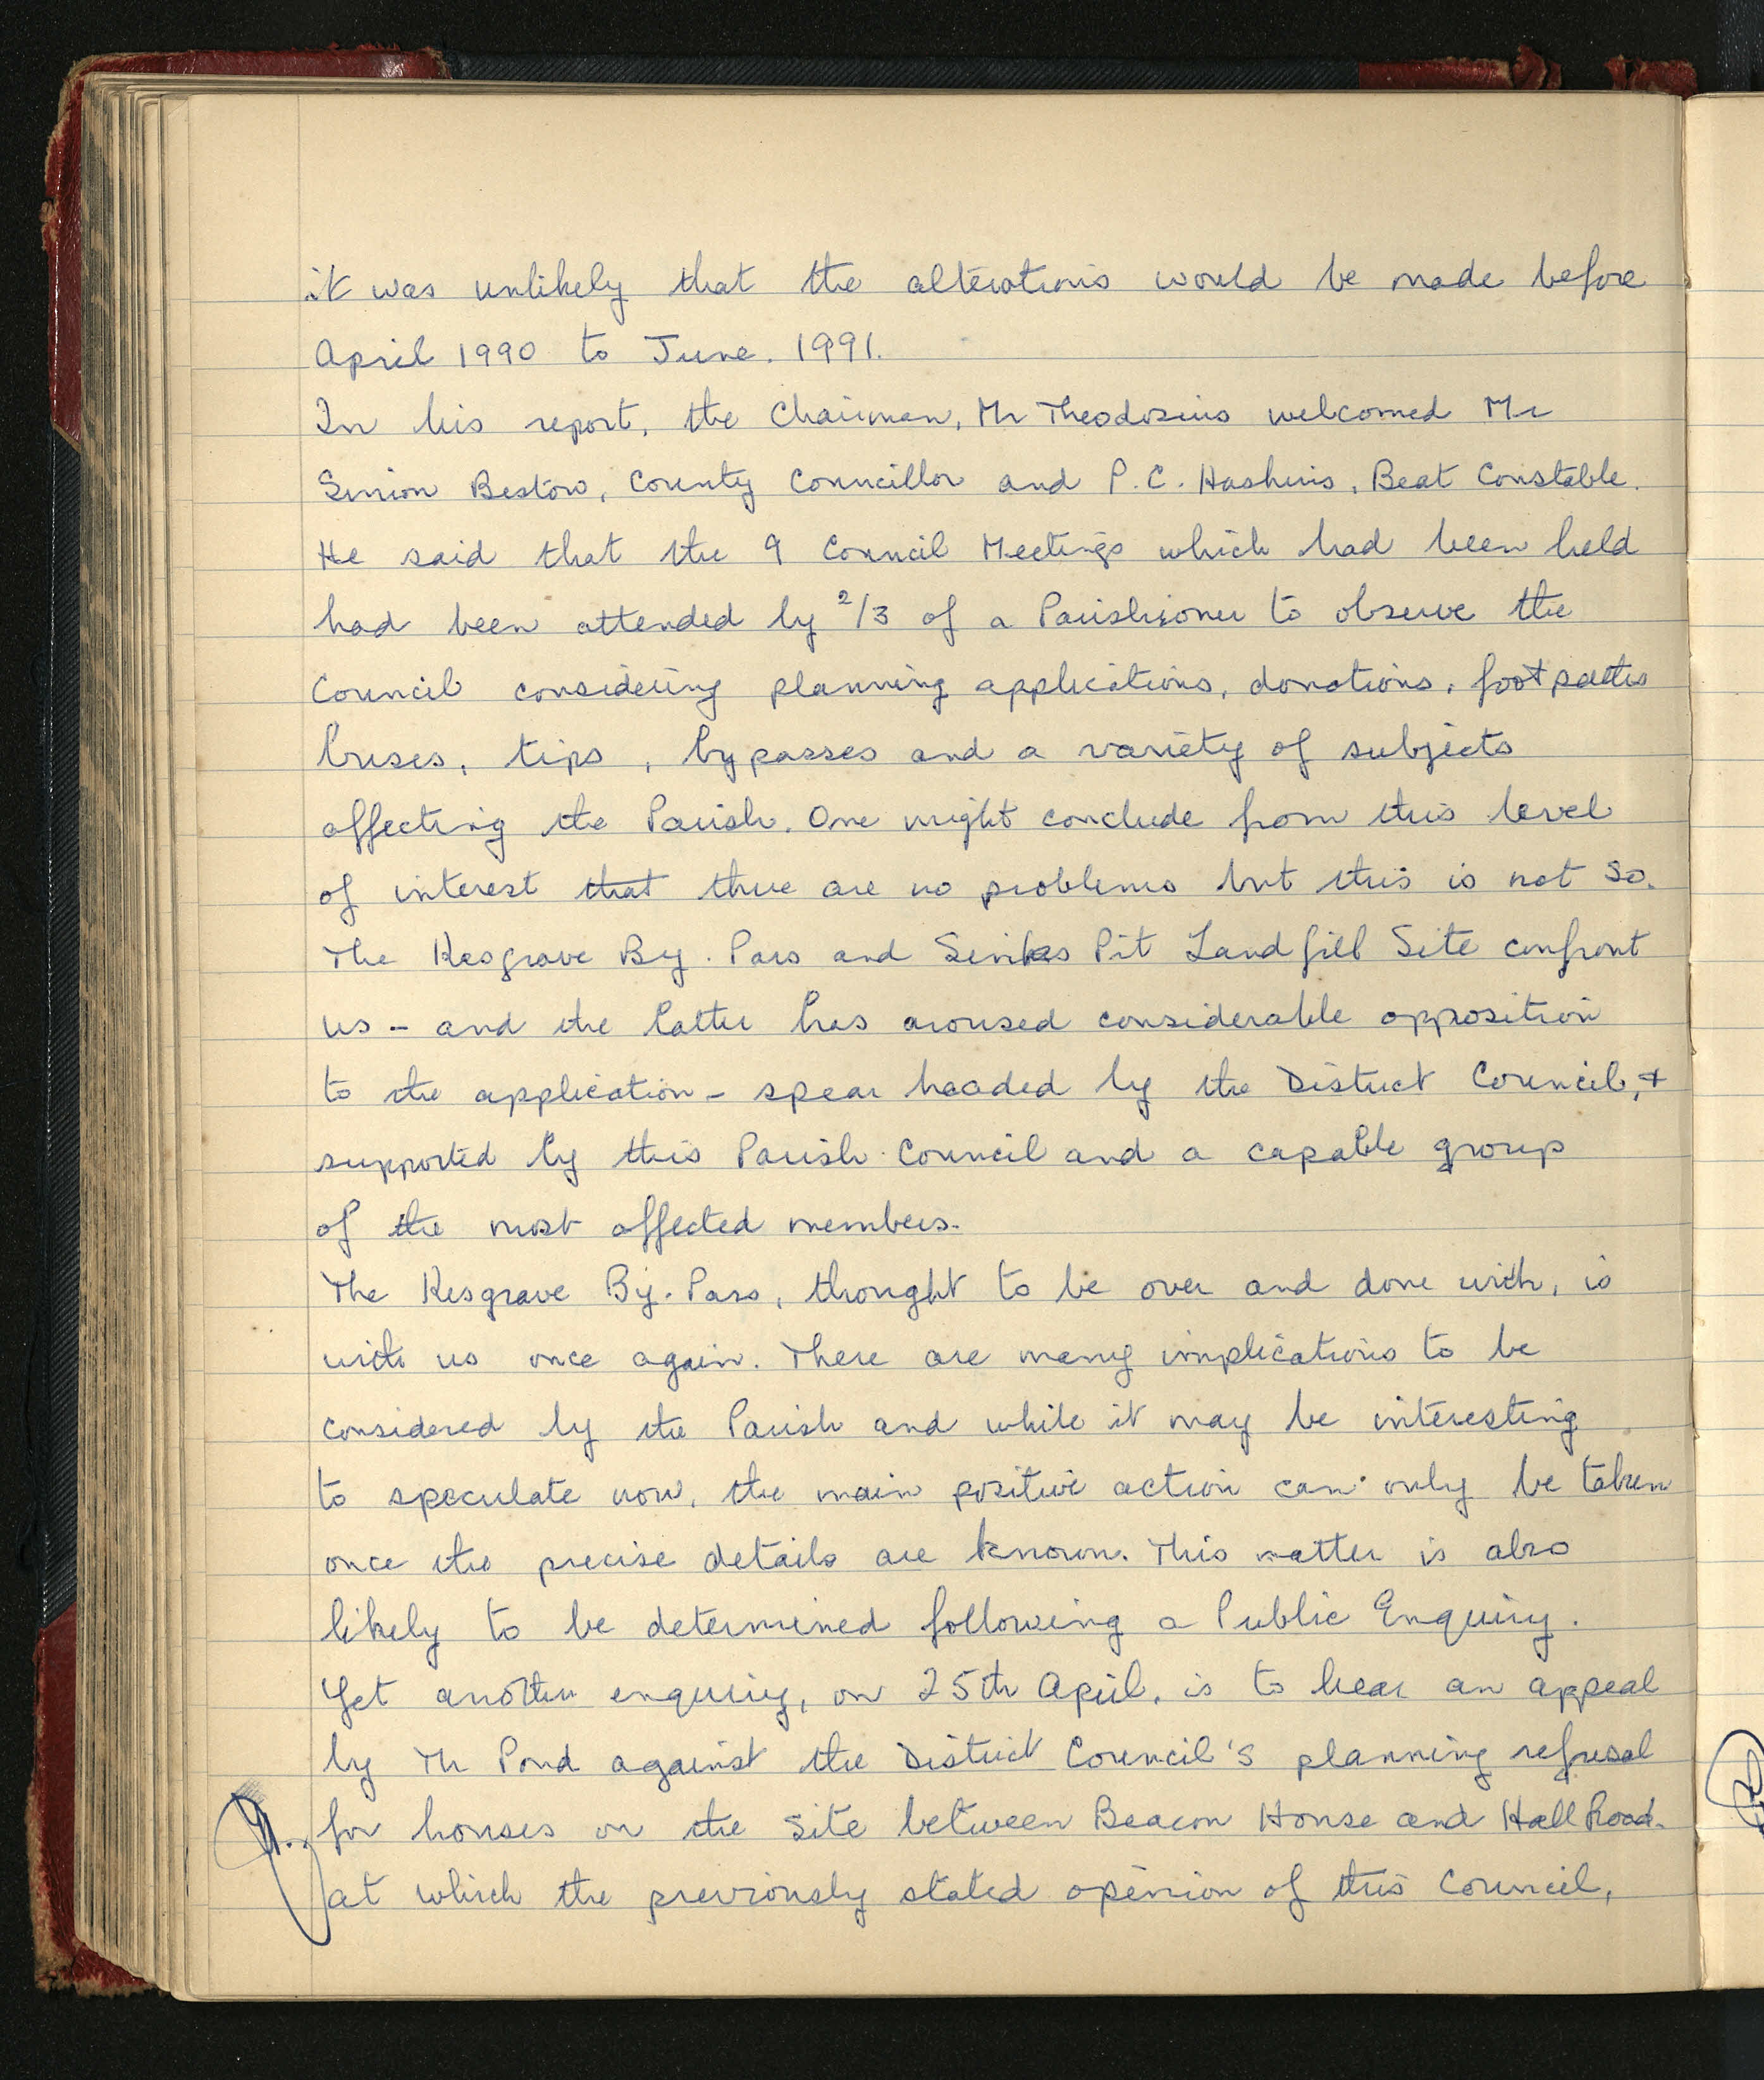 it was unlikely that the alterations would be made before
April 1990 to June. 1991.
In his report, the Chairman, Mr Theodosius welcomed Mr
Simon Bestow, County Councillor and P.C. Haskins, Beat Constable.
He said that the 9 Council Meetings which had been held
had been attended by 2/3 of a Parishioner to observe the
Council considering planning applications, donations, footpaths
buses, tips, bypasses and a variety of subjects
affecting the Parish. One might conclude from this level
of interest that there are no problems but this is not so.
The Kesgrave By. Pass and Sinks Pit Landfill Site confront
us - and the latter has aroused considerable opposition
to the application - spear headed by the District Council, +
supported by this Parish Council and a capable group
of the most affected members.
The Kesgrave By. Pass, thought to be over and done with, is
with us once again. There are many implications to be
considered by the Parish and while it may be interesting
to speculate now, the main positive action can only be taken
once the precise details are known. This matter is also
likely to be determined following a Public Enquiry.
Yet another enquiry, on 25th April, is to hear an appeal
by Mr Pond against the District Council's planning refusal
for houses on the Site between Beacon House and Hall Road.
at which the previously stated opinion of this Council,